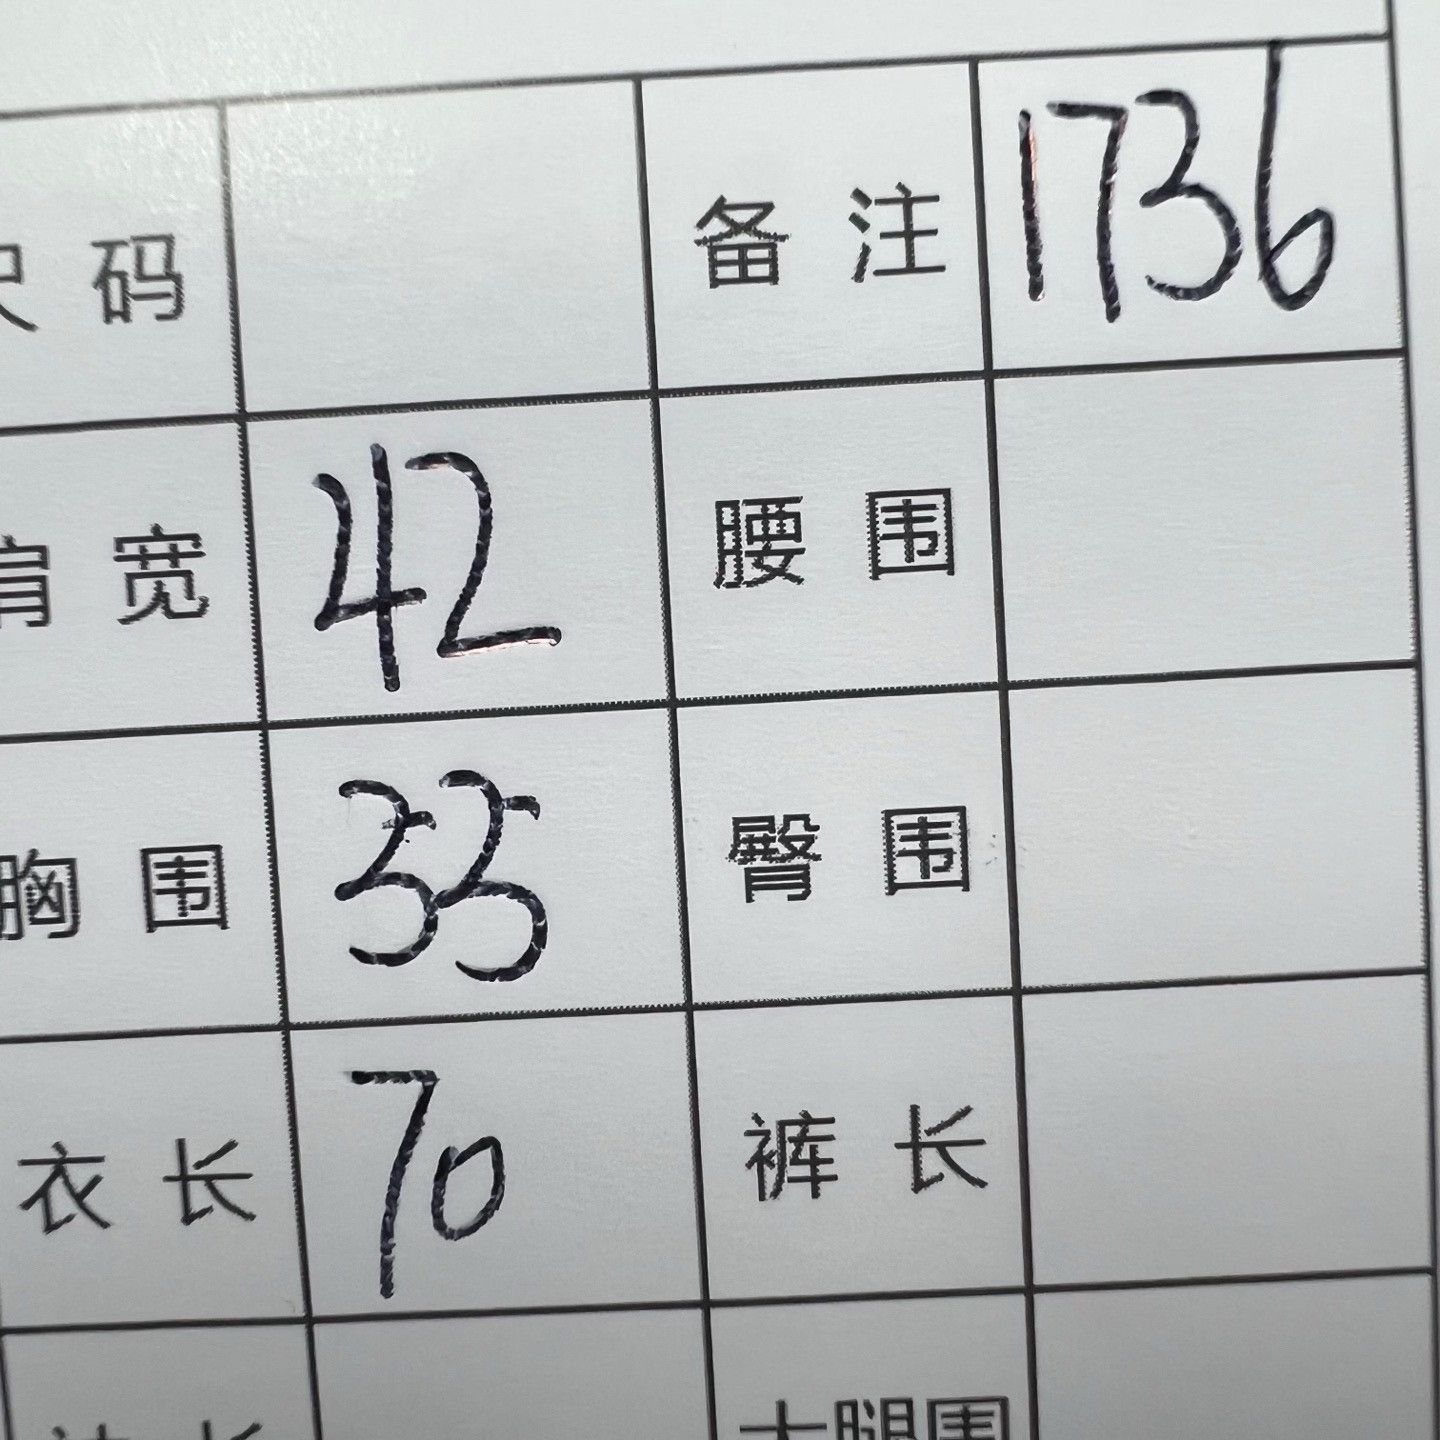 尺 码 备 注 1736
肩 宽 42 腰 围
胸 围 55 臀 围
衣 长 70 裤 长
大腿围